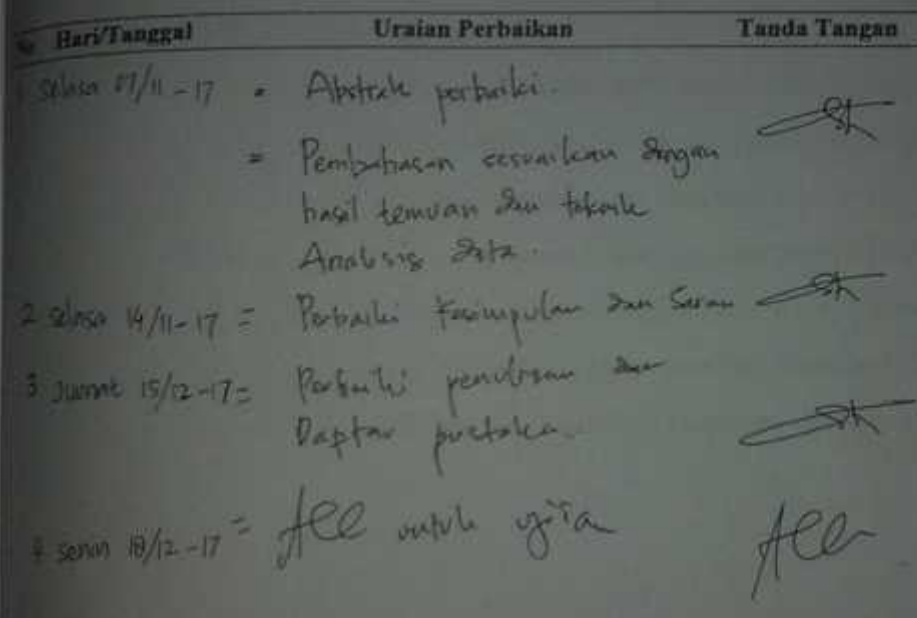 No Hari/Tanggal Uraian Perbaikan Tanda Tangan
1 selasa 07/11-17 = Abstrak perbaiki.
= Pembahasan sesuaikan dengan
hasil temuan dan teknik
Analisis data.
2 selasa 14/11-17 = Perbaiki Kesimpulan dan Saran
3 Jumat 15/12-17 = Perbaiki penulisan dan
Daptar pustaka.
4 senin 18/12-17 = Acc untuk ujian Acc